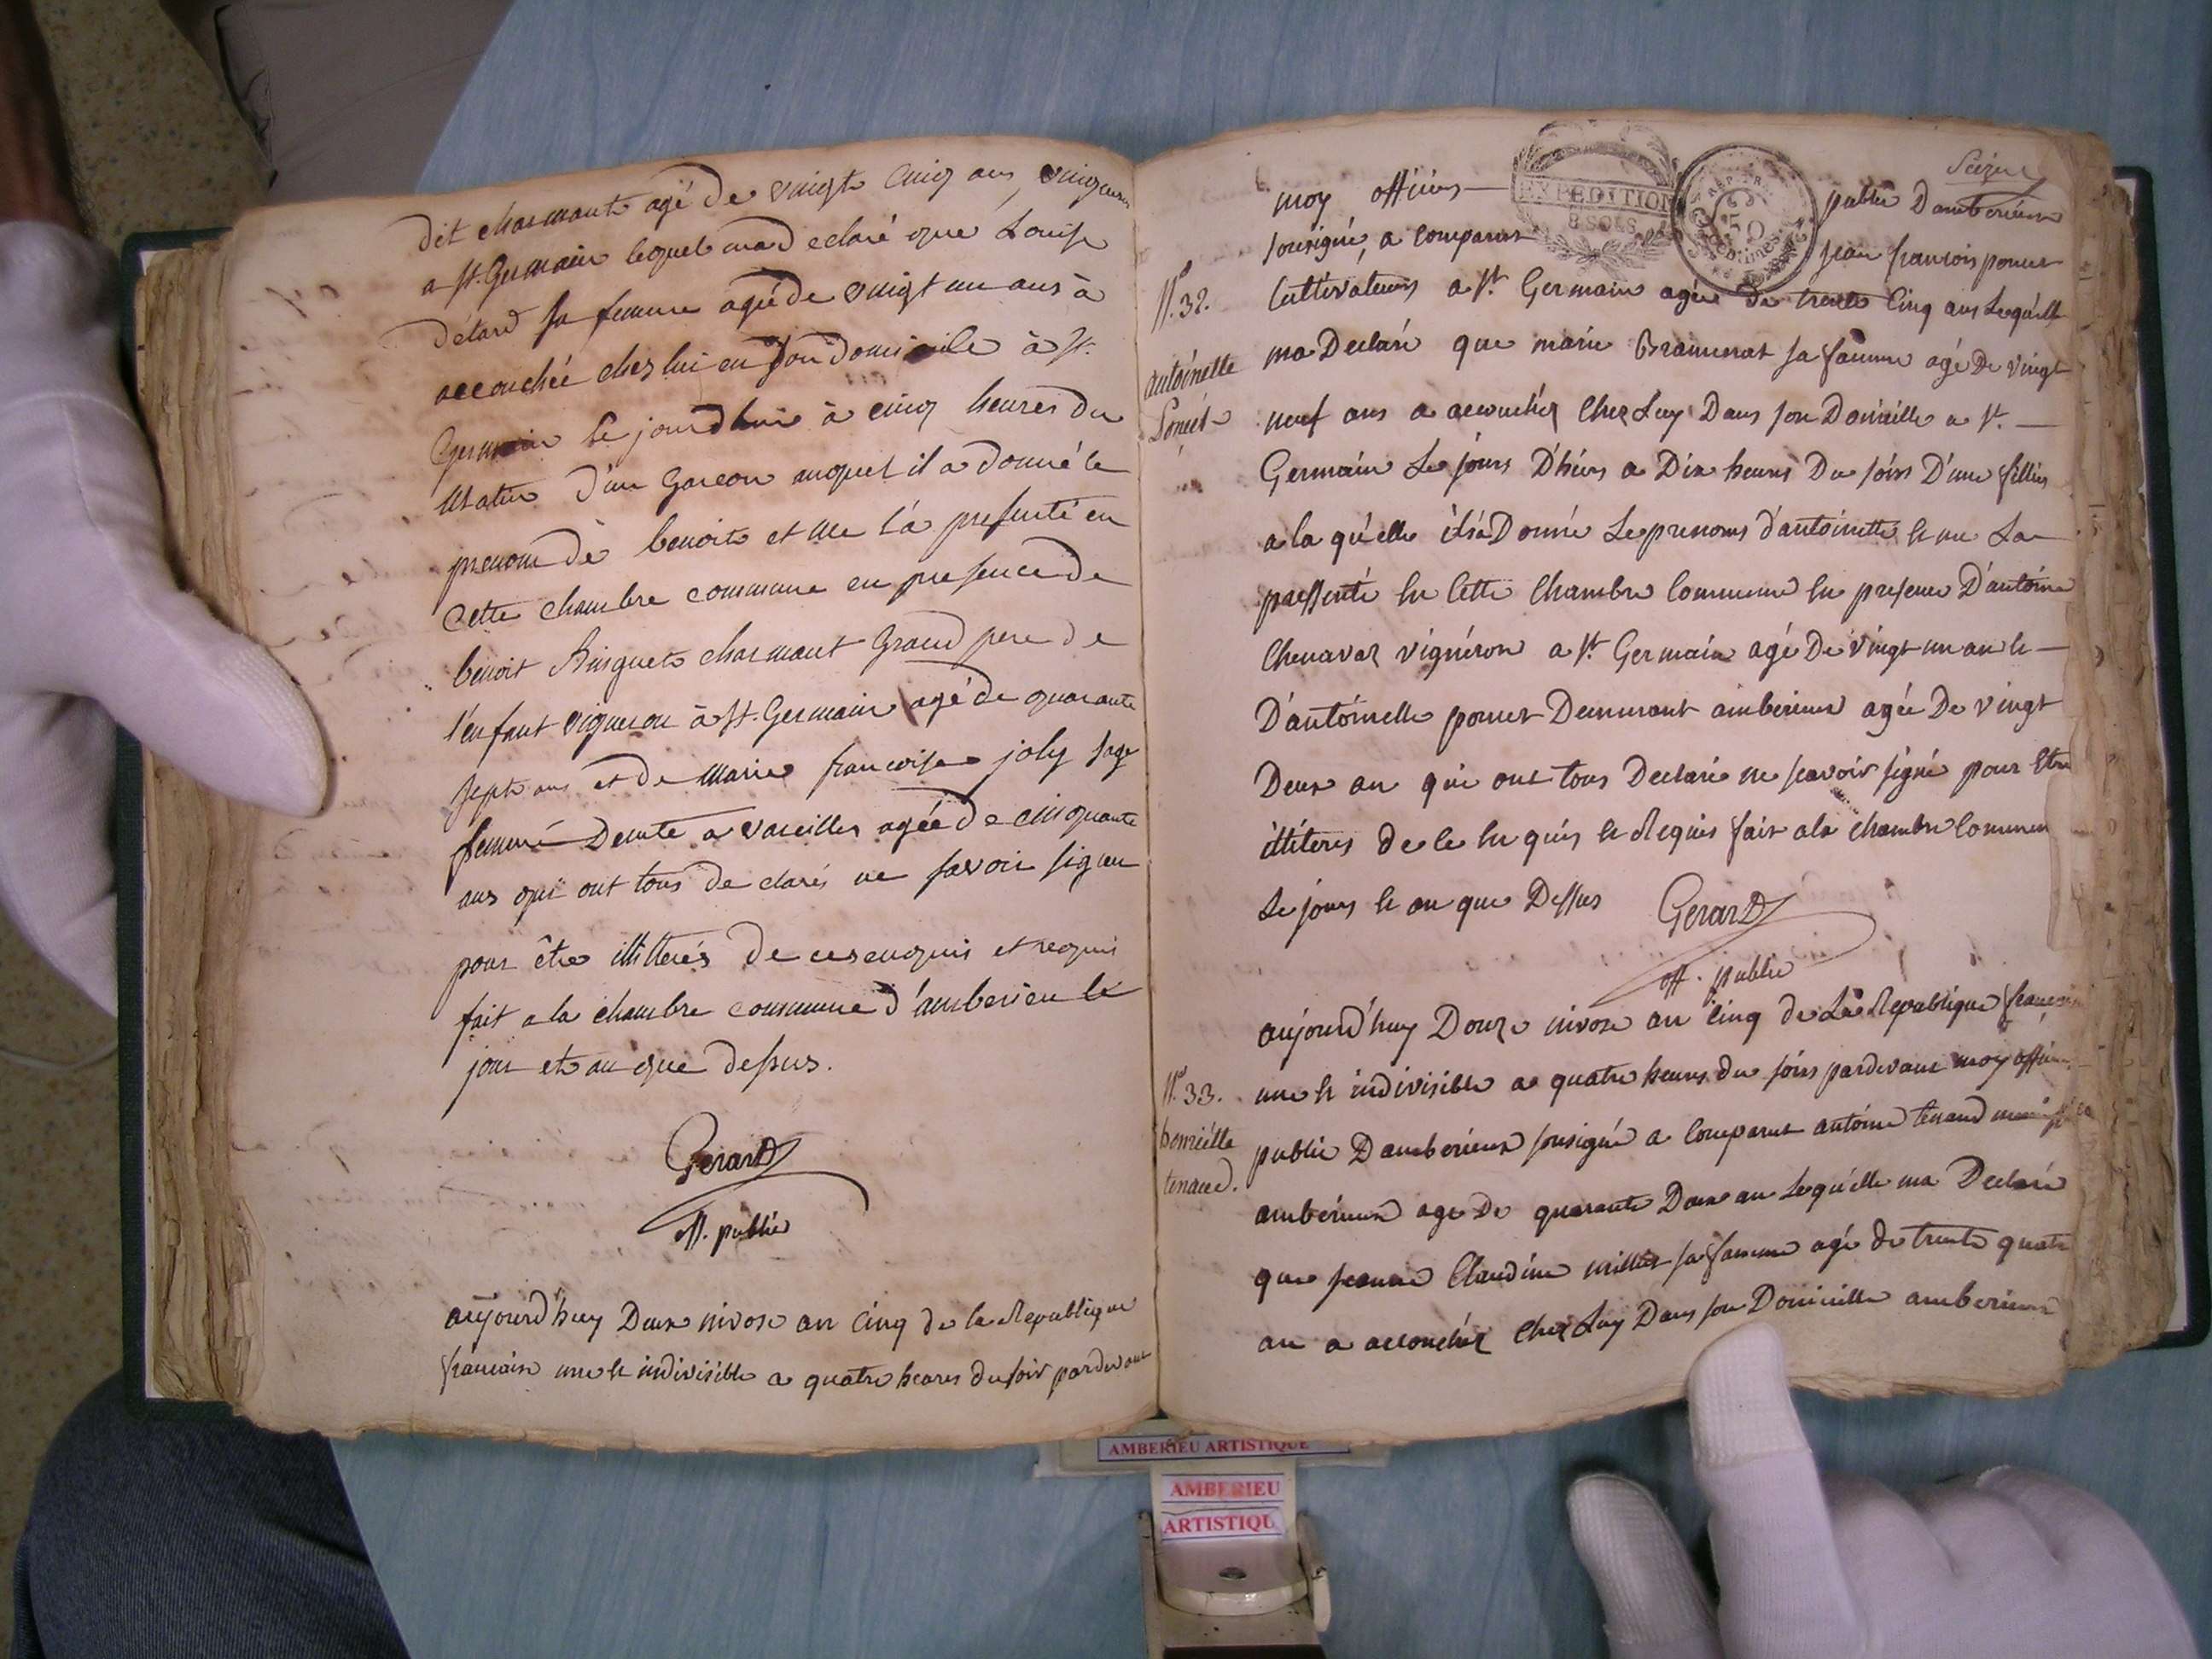 dit charmante agé de vingt cinq ans, vigneron
a St. Germain lequel ma declaré que Louise
détard sa femme agée de vingt un ans à
accouchée chez lui en son domicile à St.
Germain le jourdhui à cinq heures du
matin d'un garcon auquel il a donné le
prenom de benoit et me l'a presenté en
cette chambre commune en presence de
benoit charmant Grand pere de
l'enfant vigneron à St. Germain agé de quarante
sept ans et de Marie francoise joly sage
femme Demte a vareilles agée de cinquante
ans qui ont tous declarés ne savoir signer
pour être illitterés de ce enquis et requis
fait a la chambre commune d'amberieu le
jour et an que dessus.
Gerard
off. public
aujourd'huy Deux nivose an cinq de la Republique
francaise une et indivisible a quatre heures du soir pardevant
Seize
moy officiers public Damberieux
EXPEDITION
8 SOLS
REP. FR.
50
Centimes
sousigné, a comparut jean francois ponset
N°. 32.
antoinette
Ponset
Cultivateurs a St. Germain agée de trente Cinq ans Lequelle
ma Declaré que marie Bramerat sa famme agé De vingt
neuf ans a accouchéz Chez Luy Dans son Domicille a St.
Germain Le jours D'hiers a Dix heures Du soirs D'une fillies
a la qu'elle il a Donné Le prenoms d'antoinette et me La
pressenté en Cette Chambre Commune en presence D'antoine
Chenavaz vigneron a St. Germain agé De vingt un an et
D'antoinette ponset Demurant amberieux agée De vingt
Deux an qui ont tous Declaré ne scavoir signé pour Etre
illiteres de ce en quis et Requis fait a la Chambre Commune
Le jours et an que Dessus
Gerard
off. public
aujourd'huy Douze nivose an Cinq de La Republique francaise
N°. 33.
henriette
tenand.
une et indivisible a quatre heures du soirs pardevant moy officier
public Damberieux sousigné a Comparut antoine tenand
amberieux age De quarante Deux an Lequ'elle ma Declaré
que jeanne Claudine millet sa famme agé de trente quatre
an a accouchéz Chez Luy Dans son Domicille amberieux
AMBERIEU ARTISTIQUE
AMBERIEU
ARTISTIQU